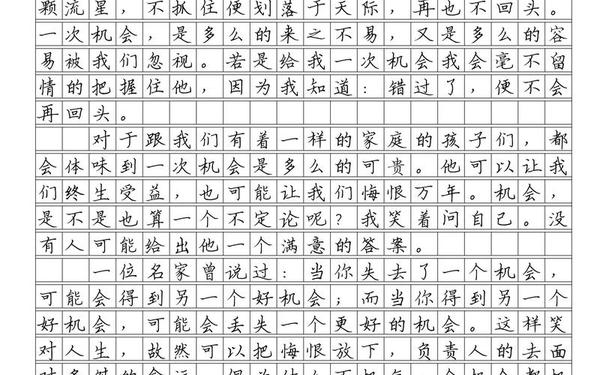 颗流星，不抓住便划落于天际，再也不回头。
一次机会，是多么的来之不易，又是多么的容
易被我们忽视。若是给我一次机会我会毫不留
情的把握住他，因为我知道：错过了，便不会
再回头。
对于跟我们有着一样的家庭的孩子们，都
会体味到一次机会是多么的可贵。他可以让我
们终生受益，也可能让我们悔恨万年。机会，
是不是也算一个不定论呢？我笑着问自己。没
有人可能给出他一个满意的答案。
一位名家曾说过：当你失去了一个机会，
可能会得到另一个好机会；而当你得到另一个
好机会，可能会丢失一个更好的机会。这样笑
对人生，故然可以把悔恨放下，负责人的去面